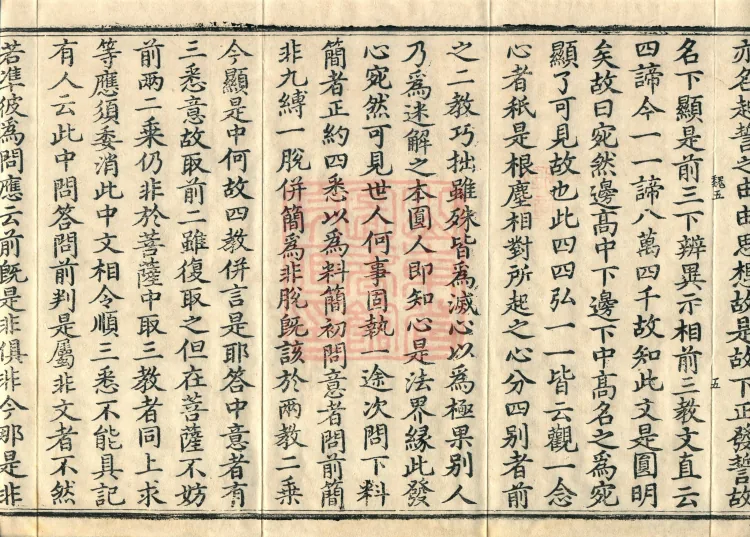 亦名起誓之由由思想故是故下正發誓故
名下顯是前三下辨異示相前三教文直云
四諦今一一諦八萬四千故知此文是圓明
矣故曰宛然邊高中下邊下中高名之為宛
顯了可見故也此四四弘一一皆云觀一念
心者秖是根塵相對所起之心分四別者前
之二教巧拙雖殊皆為滅心以為極果別人
乃為迷解之本圓人即知心是法界緣此發
心宛然可見世人何事固執一途次問下料
簡者正約四悉以為料簡初問意者問前簡
非九縛一脫併簡為非脫既該於兩教二乘
今顯是中何故四教併言是耶答中意者有
三悉意故取前二雖復取之但在菩薩不妨
前兩二乘仍非於菩薩中取三教者同上求
等應須委消此中文相令順三悉不能具記
有人云此中問答問前判是屬非文者不然
若準彼為問應云前既是非俱非今那是非
魏五
五